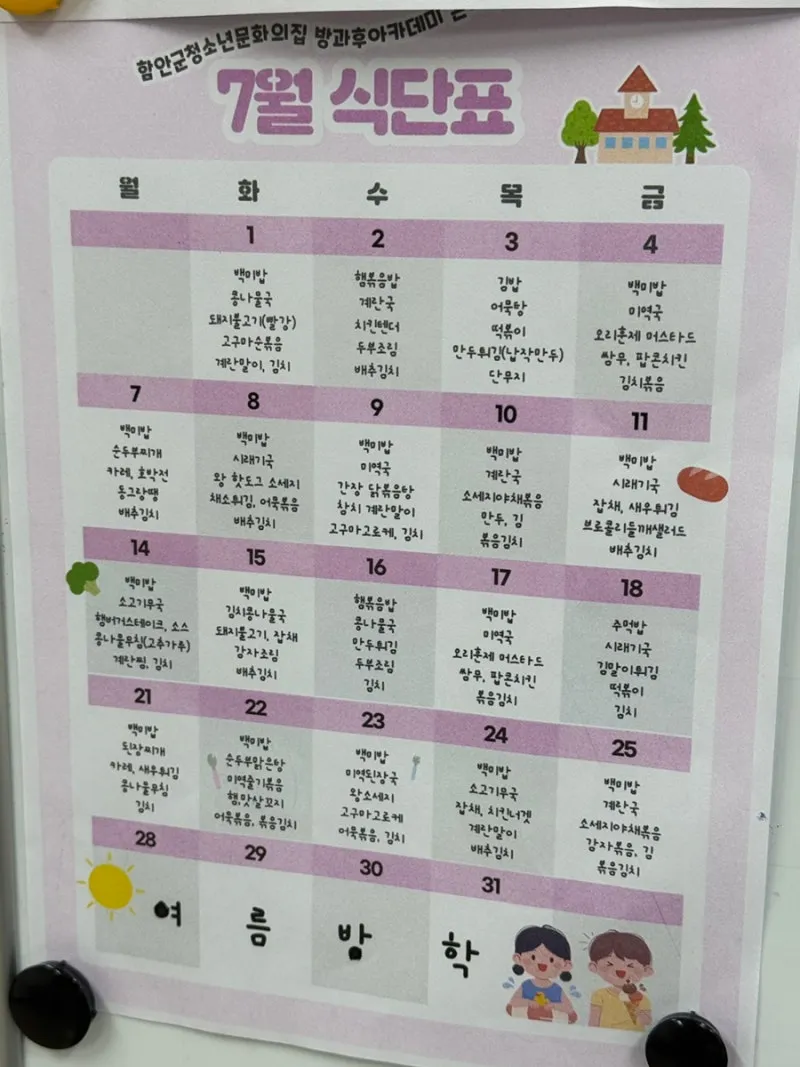 함안군청소년문화의집 방과후아카데미
7월 식단표
월 화 수 목 금
1 2 3 4
백미밥
콩나물국
돼지불고기(빨강)
고구마순볶음
계란말이, 김치
햄볶음밥
계란국
치킨텐더
두부조림
배추김치
김밥
어묵탕
떡볶이
만두튀김(납작만두)
단무지
백미밥
미역국
오리훈제 머스타드
쌈무, 팝콘치킨
김치볶음
7 8 9 10 11
백미밥
순두부찌개
카레, 호박전
동그랑땡
배추김치
백미밥
시래기국
왕 핫도그 소세지
채소튀김, 어묵볶음
배추김치
백미밥
미역국
간장 닭볶음탕
참치 계란말이
고구마고로케, 김치
백미밥
계란국
소세지야채볶음
만두, 김
볶음김치
백미밥
시래기국
잡채, 새우튀김
브로콜리들깨샐러드
배추김치
14 15 16 17 18
백미밥
소고기무국
햄버거스테이크, 소스
콩나물무침(고추가루)
계란찜, 김치
백미밥
김치콩나물국
돼지불고기, 잡채
감자조림
배추김치
햄볶음밥
콩나물국
만두튀김
두부조림
김치
백미밥
미역국
오리훈제 머스타드
쌈무, 팝콘치킨
볶음김치
주먹밥
시래기국
김말이튀김
떡볶이
김치
21 22 23 24 25
백미밥
된장찌개
카레, 새우튀김
콩나물무침
김치
백미밥
순두부맑은탕
미역줄기볶음
햄,맛살꼬지
어묵볶음, 볶음김치
백미밥
미역된장국
왕소세지
고구마고로케
어묵볶음, 김치
백미밥
소고기무국
잡채, 치킨너겟
계란말이
배추김치
백미밥
계란국
소세지야채볶음
감자볶음, 김
볶음김치
28 29 30 31
여 름 방 학